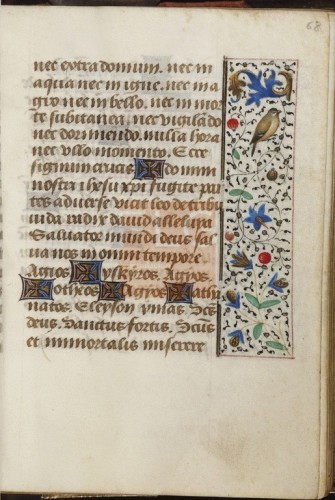 68
nec extra domum. nec in
aqua nec in igne. nec ma
gno nec in bello. nec in mor
te subitanea. nec vigilādo
nec dormiendo. nulla hora
nec ullo momento. Ecce
signum crucis ✠ domini
nostri ihesu xpi fugite par
tes adverse vicit leo de tribu
iuda radix david alleluya
Salvator mundi deus sal
va nos in omni tempore
Agios ✠ yskyros. Agyos.
✠ otheos ✠ Agyos ✠ atha
natos. Eleyson ymas. Scs
deus. Sanctus fortis. Scūs
et immortalis miserere